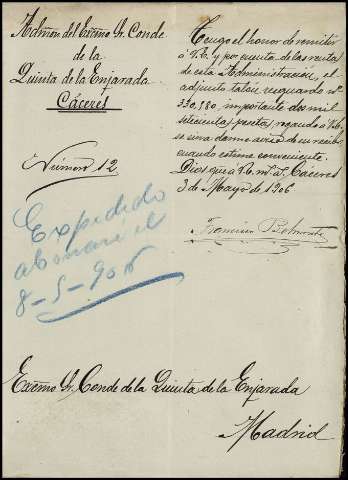 Admón del Excmo Sr. Conde
de la
Quinta de la Enjarada
Cáceres
Número 12
Expedido
abonaré el
8-5-906
Tengo el honor de remitir
á V.E. y por cuenta de las rentas
de esta Administración, el
adjunto talón resguardo nº
330,180, importante dos mil
setecientas pesetas, rogando á V.E.
se sirva darme aviso de su recibo,
cuando estime conveniente.
Dios gue á V.E. ms. as. Cáceres
3 de Mayo de 1906
Francisco Belmonte
Excmo Sr. Conde de la Quinta de la Enjarada
Madrid